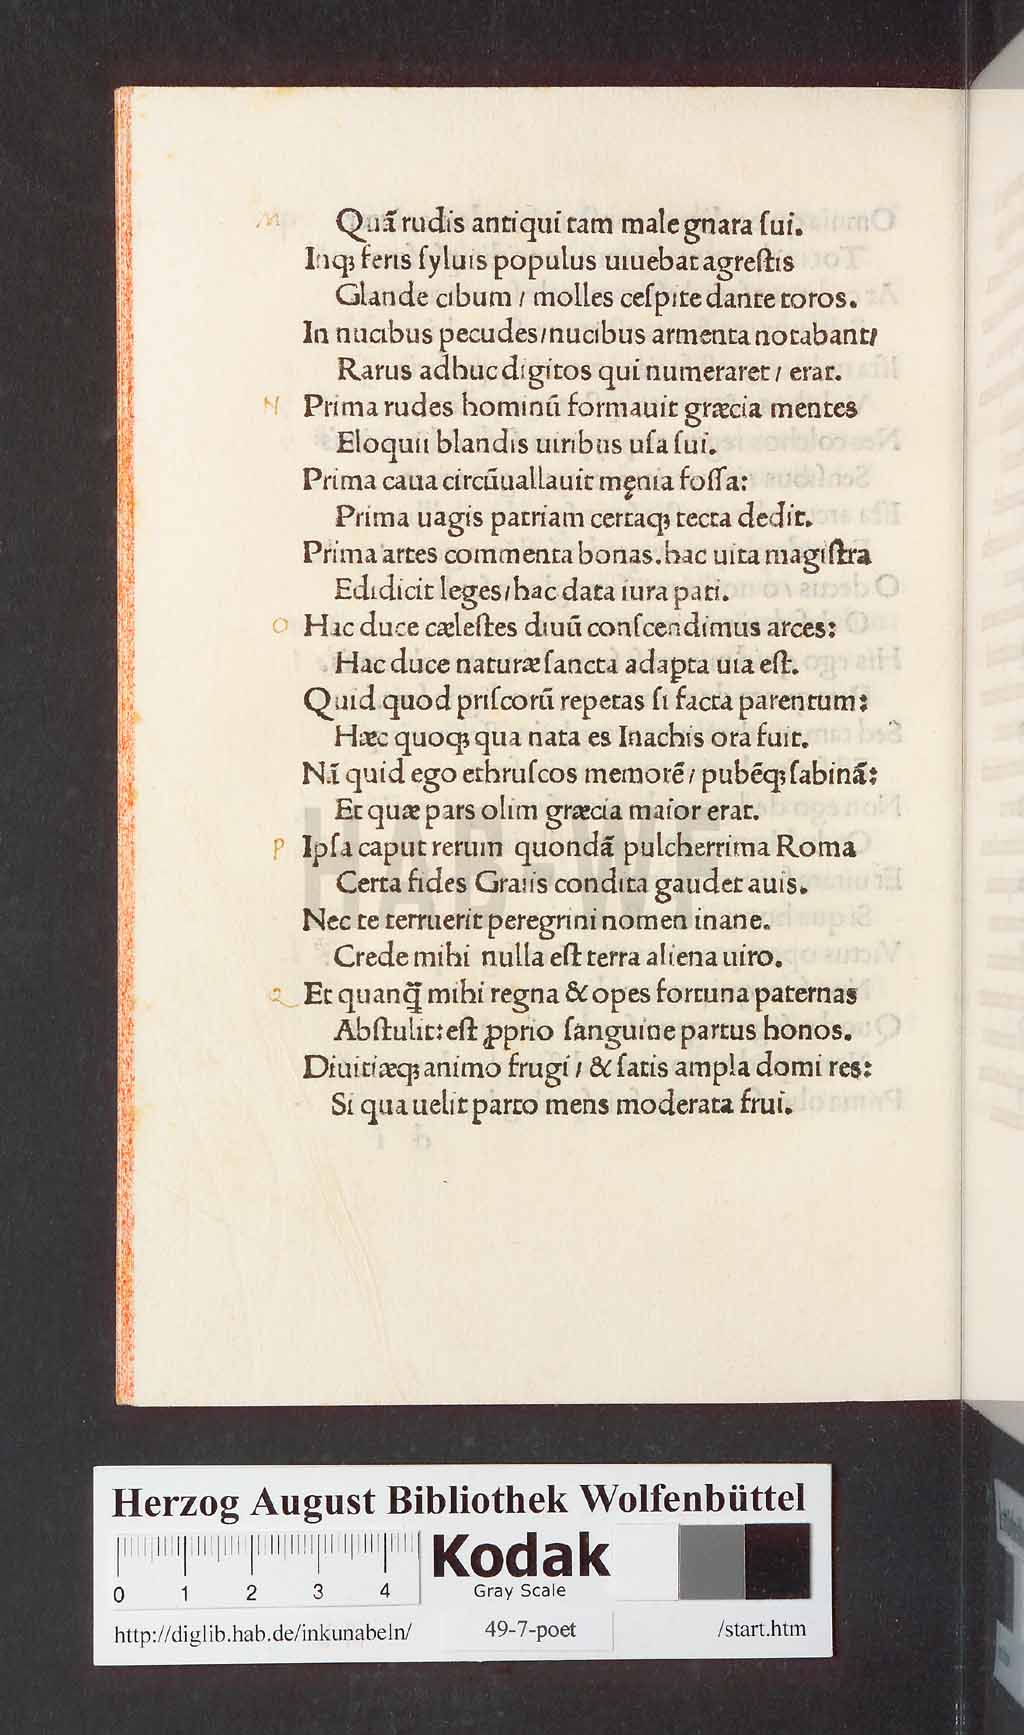 M Quā rudis antiqui tam male gnara ſui.
Inqꝫ feris ſyluis populus uiuebat agreſtis
Glande cibum / molles ceſpite dante toros.
In nucibus pecudes/nucibus armenta notabant/
Rarus adhuc digitos qui numeraret / erat.
N Prima rudes hominū formauit græcia mentes
Eloquii blandis uiribus uſa ſui.
Prima caua circūuallauit męnia foſſa:
Prima uagis patriam certaqꝫ tecta dedit.
Prima artes commenta bonas. hac uita magiſtra
Edidicit leges/hac data iura pati.
O Hac duce cæleſtes diuū conſcendimus arces:
Hac duce naturæ ſancta adaꝑta uia eſt.
Quid quod priſcorū repetas ſi facta parentum:
Hæc quoqꝫ qua nata es Inachis ora fuit.
Nā quid ego ethruſcos memorē / pubēqꝫ ſabinā:
Et quæ pars olim græcia maior erat.
P Ipſa caput rerum quondā pulcherrima Roma
Certa fides Graiis condita gaudet auis.
Nec te terruerit peregrini nomen inane.
Crede mihi nulla eſt terra aliena uiro.
Q Et quanq̄ mihi regna & opes fortuna paternas
Abſtulit: eſt ꝓprio ſanguine partus honos.
Diuitiæqꝫ animo frugi / & ſatis ampla domi res:
Si qua uelit parto mens moderata frui.
HAB WF
Herzog August Bibliothek Wolfenbüttel
0 1 2 3 4
Kodak
Gray Scale
http://diglib.hab.de/inkunabeln/ 49-7-poet /start.htm